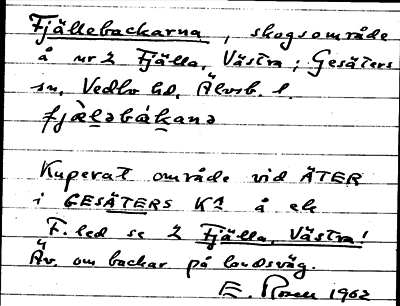 Fjällebackarna, skogsområde
å nr 2 Fjälla, Västra; Gesäters
sn, Vedbo hd, Älvsb. l.
fjæ̀l̥əbákanə
Kuperat område vid ÄTER
i GESÄTERS Kn å ek
F. led se 2 Fjälla, Västra!
Äv. om backar på landsväg.
E. 1962